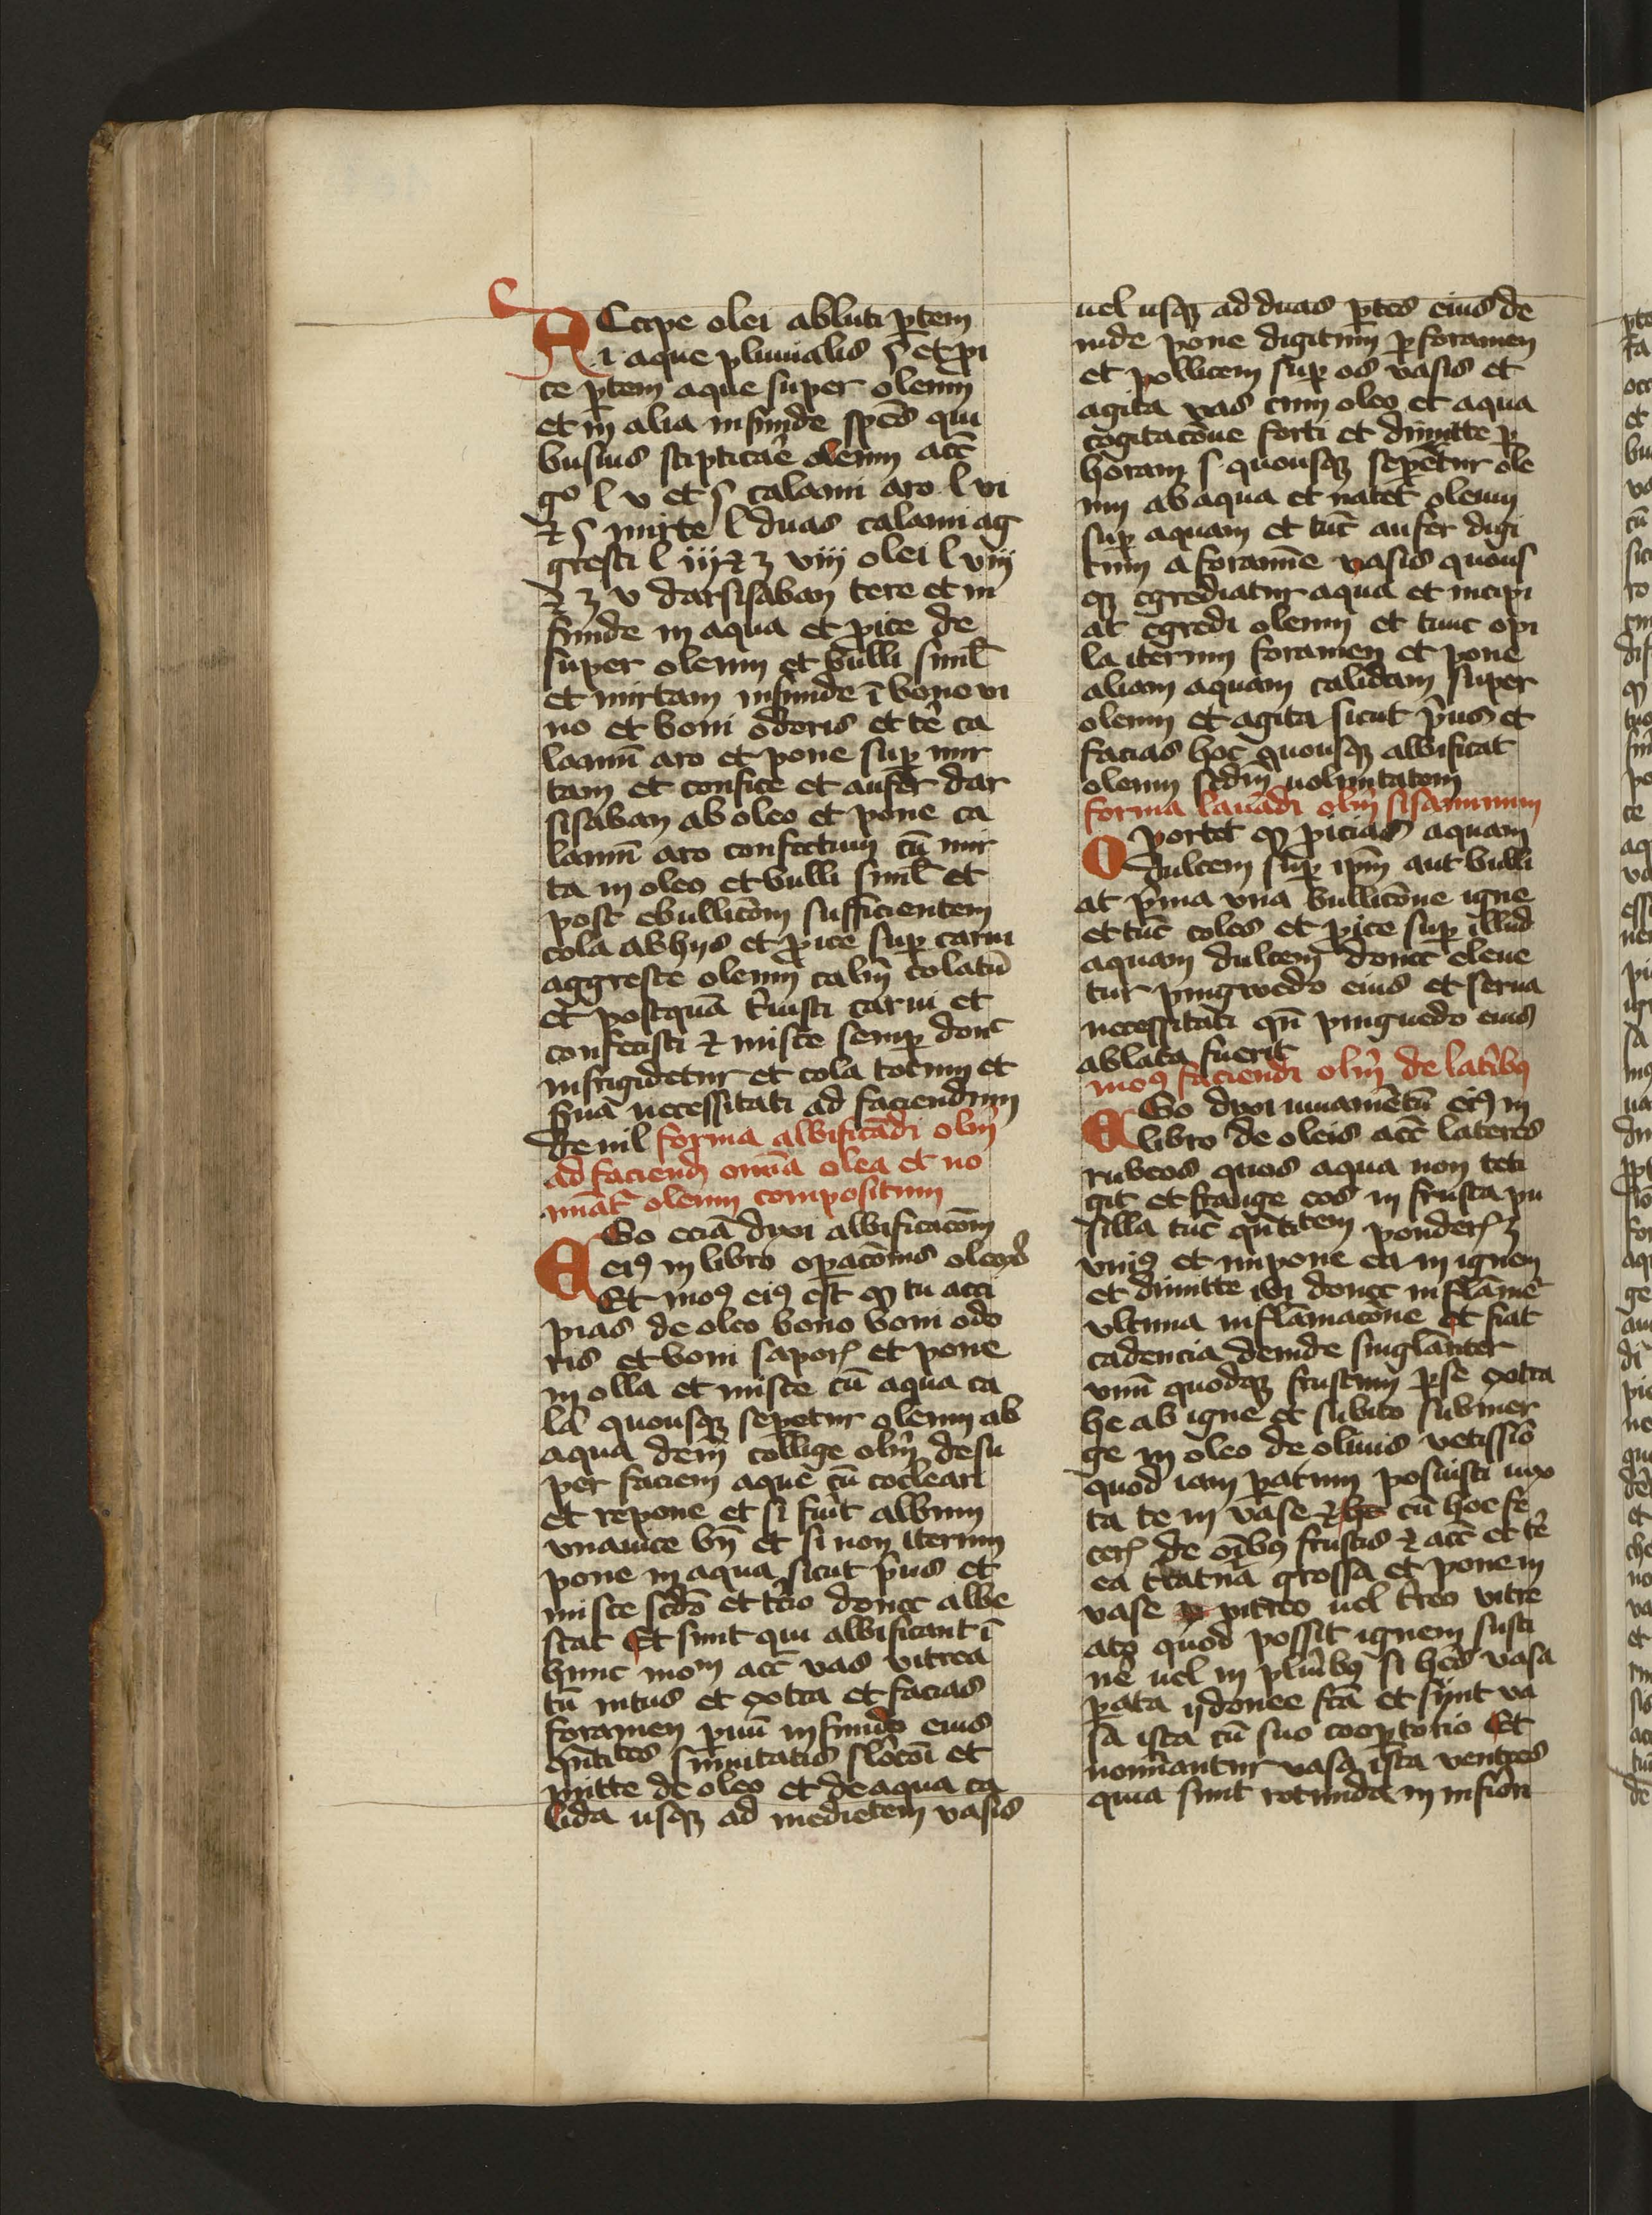 ACcipe olei abluti ꝑtem
.i. aque pluuialis ſ et ꝓi
ce ꝑtem aque super oleum
et in̄ alia infunde spēs qui
busius stipticaē oleum acc̄
gᵒ l v et ſ calami aro l vi
⁊ ſ mirte l duas calami ag
gresti l iij ⁊ ʒ viij olei l viij
⁊ ʒ v darsisaban tere et in
funde in aqua et ꝓice de
super oleum et bulli simł
et mirtam infunde ī bono vi
no et boni odoris et tē ca
lamū aro et pone suꝑ mir
tam et confice et aufer dar
sisaban ab oleo et pone ca
lamū aro confectum cū mir
ta in oleo et bulli simł et
post ebullicōm sufficientem
cola ab hijs et ꝓice suꝑ carui
aggreste oleum calm̄ colatū
et postquā t̄uisti carui et
confecisti ⁊ misce semꝑ donc
infrigidetur et cola totum et
ẜua necessitati ad faciendum
de nil forma albificādi olm̄
ad faciend omīa olea et no
mīat oleum compositum
EGo eciā dixi albificacōm
eiꝰ in libro oꝑacōnis oleoꝝ
Et moꝰ eiꝰ est ꝙ tu acci
pias de oleo bono boni odo
ris et boni saporꝭ et pone
in olla et misce cū aqua ca
lā quousqꝫ seꝑetur oleum ab
aqua dem̄ collige olm̄ desu
per faciem aque cū cocleari
et repone et si fuīt album
vnauice bn̄ et si non iterum
pone in aqua sicut p̄us et
misce scdō et tc̄io donec albe
scat Et sunt qui albificant ī
hunc moꝫ acc̄ vas vitrea
tū intus et extra et facias
foramen ꝑuū in fundo eius
qn̄titas sūmitatis slōcōi et
mitte de oleo et de aqua ca
lida usqꝫ ad medietem vasis
uel usqꝫ ad duas ꝑtes eius de
inde pone digitum ꝑ foramen
et pollicem suꝑ os vasis et
agita vas cum oleo et aqua
cogitacōne forti et dimitte ꝑ
horam ſ quousqꝫ seꝑetur ole
um ab aqua et natet oleum
suꝑ aquam et tūc aufer digi
tum a foramīe vasis quous
qꝫ egrediatur aqua et incipi
at egredi oleum et tunc opi
la iterum foramen et pone
aliam aquam calidam super
oleum et agita sicut p̄us et
facias hoc quousqꝫ albificat
oleum scdm̄ uoluntatem
forma lauādi olm̄ sisaminum
Oportet ꝙ ꝓicias aquam
dulcem suꝑ ipm̄ aut bulli
at p̄ma vna bullicōne igne
et tūc coles et ꝓice suꝑ illud
aquam dulcem donec eleue
tur pingwedo eius et serua
necessitati qn̄ pinguedo eius
ablata fuerit
moꝰ faciendi olm̄ de lat̄ibꝰ
EGo dixi iuuamētū eiꝰ in
libro de oleis acc̄ lateres
rubeos quos aqua non teti
git et frange eos in frusta pu
silla tūc qn̄titem ponderꝭ ʒ
vniꝰ et impone ea in ignem
et dimitte ibi donec inflāme
vltima inflāmacōne et fiat
cadencia deinde singlāriter
vnū quodqꝫ frustum ꝑ se extra
he ab igne et subito submer
ge in oleo de oliuis vetissīo
quod iam ꝑatum posuisti iux
ta te in vase ⁊ cū hoc fe
cerꝭ de oībꝰ frustis ⁊ acc̄ et tē
ea t̄tatuā grossa et pone in
vase pitreo uel t̄reo vitre
ato quod possit ignem susti
nē uel in plūibꝰ si hēs vasa
ꝑata ijdonee fc̄a et sunt va
sa ista cū suo coopꝑtorio Et
nomīantur vasa ista ventres
quia sunt rotunda in infiori